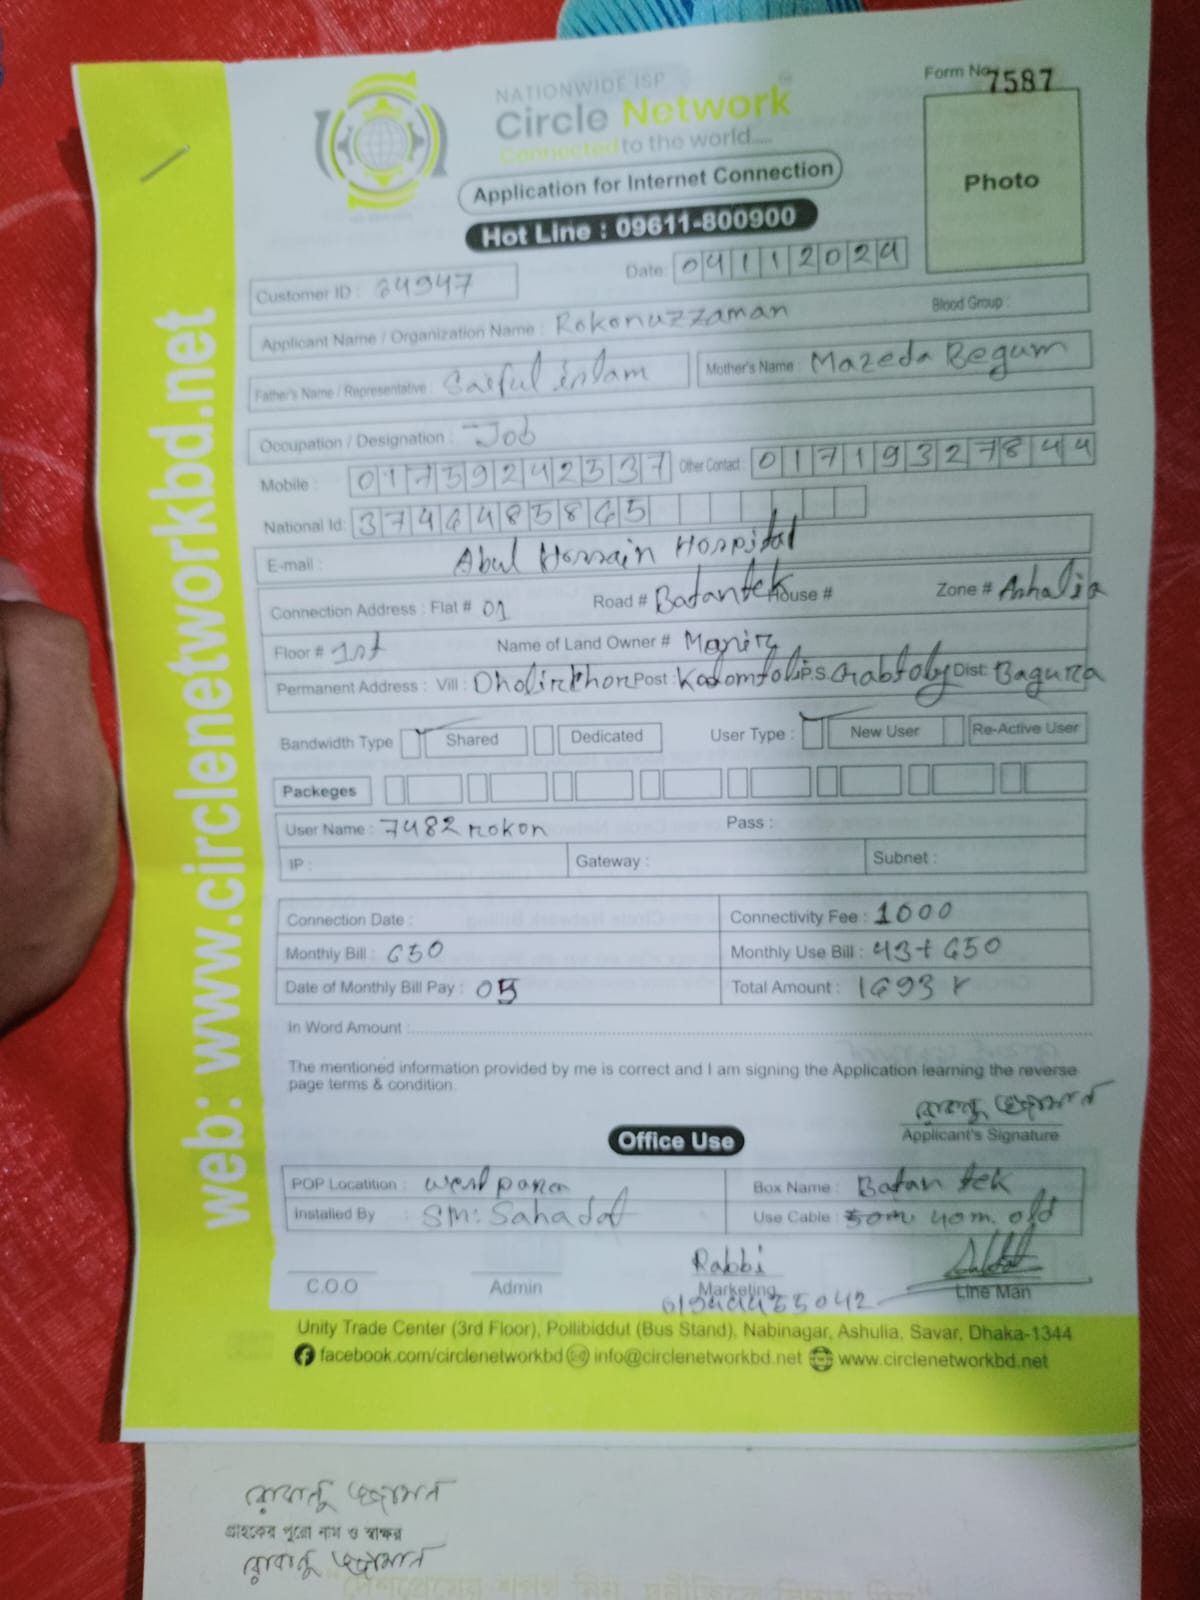 Form No. 7587
NATIONWIDE ISP
Circle Network
Connected to the world.....
Application for Internet Connection
Hot Line : 09611-800900
Photo
web: www.circlenetworkbd.net
Customer ID : 64947 Date: 04112024
Applicant Name / Organization Name : Rokonuzzaman Blood Group :
Father's Name / Representative : Saiful islam Mother's Name : Mazeda Begum
Occupation / Designation : Job
Mobile : 01739242337 Other Contact : 01719327844
National Id: 3746485865
E-mail : Abul Hossain Hospital
Connection Address : Flat # 01 Road # Batantek House # Zone # Ashalia
Floor # 1st Name of Land Owner # Monir
Permanent Address : Vill : Post : P.S Gabtoly Dist: Bagura
Bandwidth Type Shared Dedicated User Type : New User Re-Active User
Packeges
User Name : 7482rokon Pass :
IP : Gateway : Subnet :
Connection Date : Connectivity Fee : 1000
Monthly Bill : 650 Monthly Use Bill : 43+650
Date of Monthly Bill Pay : 05 Total Amount : 1693
In Word Amount :
The mentioned information provided by me is correct and I am signing the Application learning the reverse
page terms & condition.
Applicant's Signature
Office Use
POP Locatition : west para Box Name : Batan tek
Installed By : SM: Sahadat Use Cable : 50m 40m. old
Rabbi
C.O.O Admin Marketing Line Man
Unity Trade Center (3rd Floor), Pollibiddut (Bus Stand), Nabinagar, Ashulia, Savar, Dhaka-1344
facebook.com/circlenetworkbd info@circlenetworkbd.net www.circlenetworkbd.net
গ্রাহকের পুরো নাম ও স্বাক্ষর